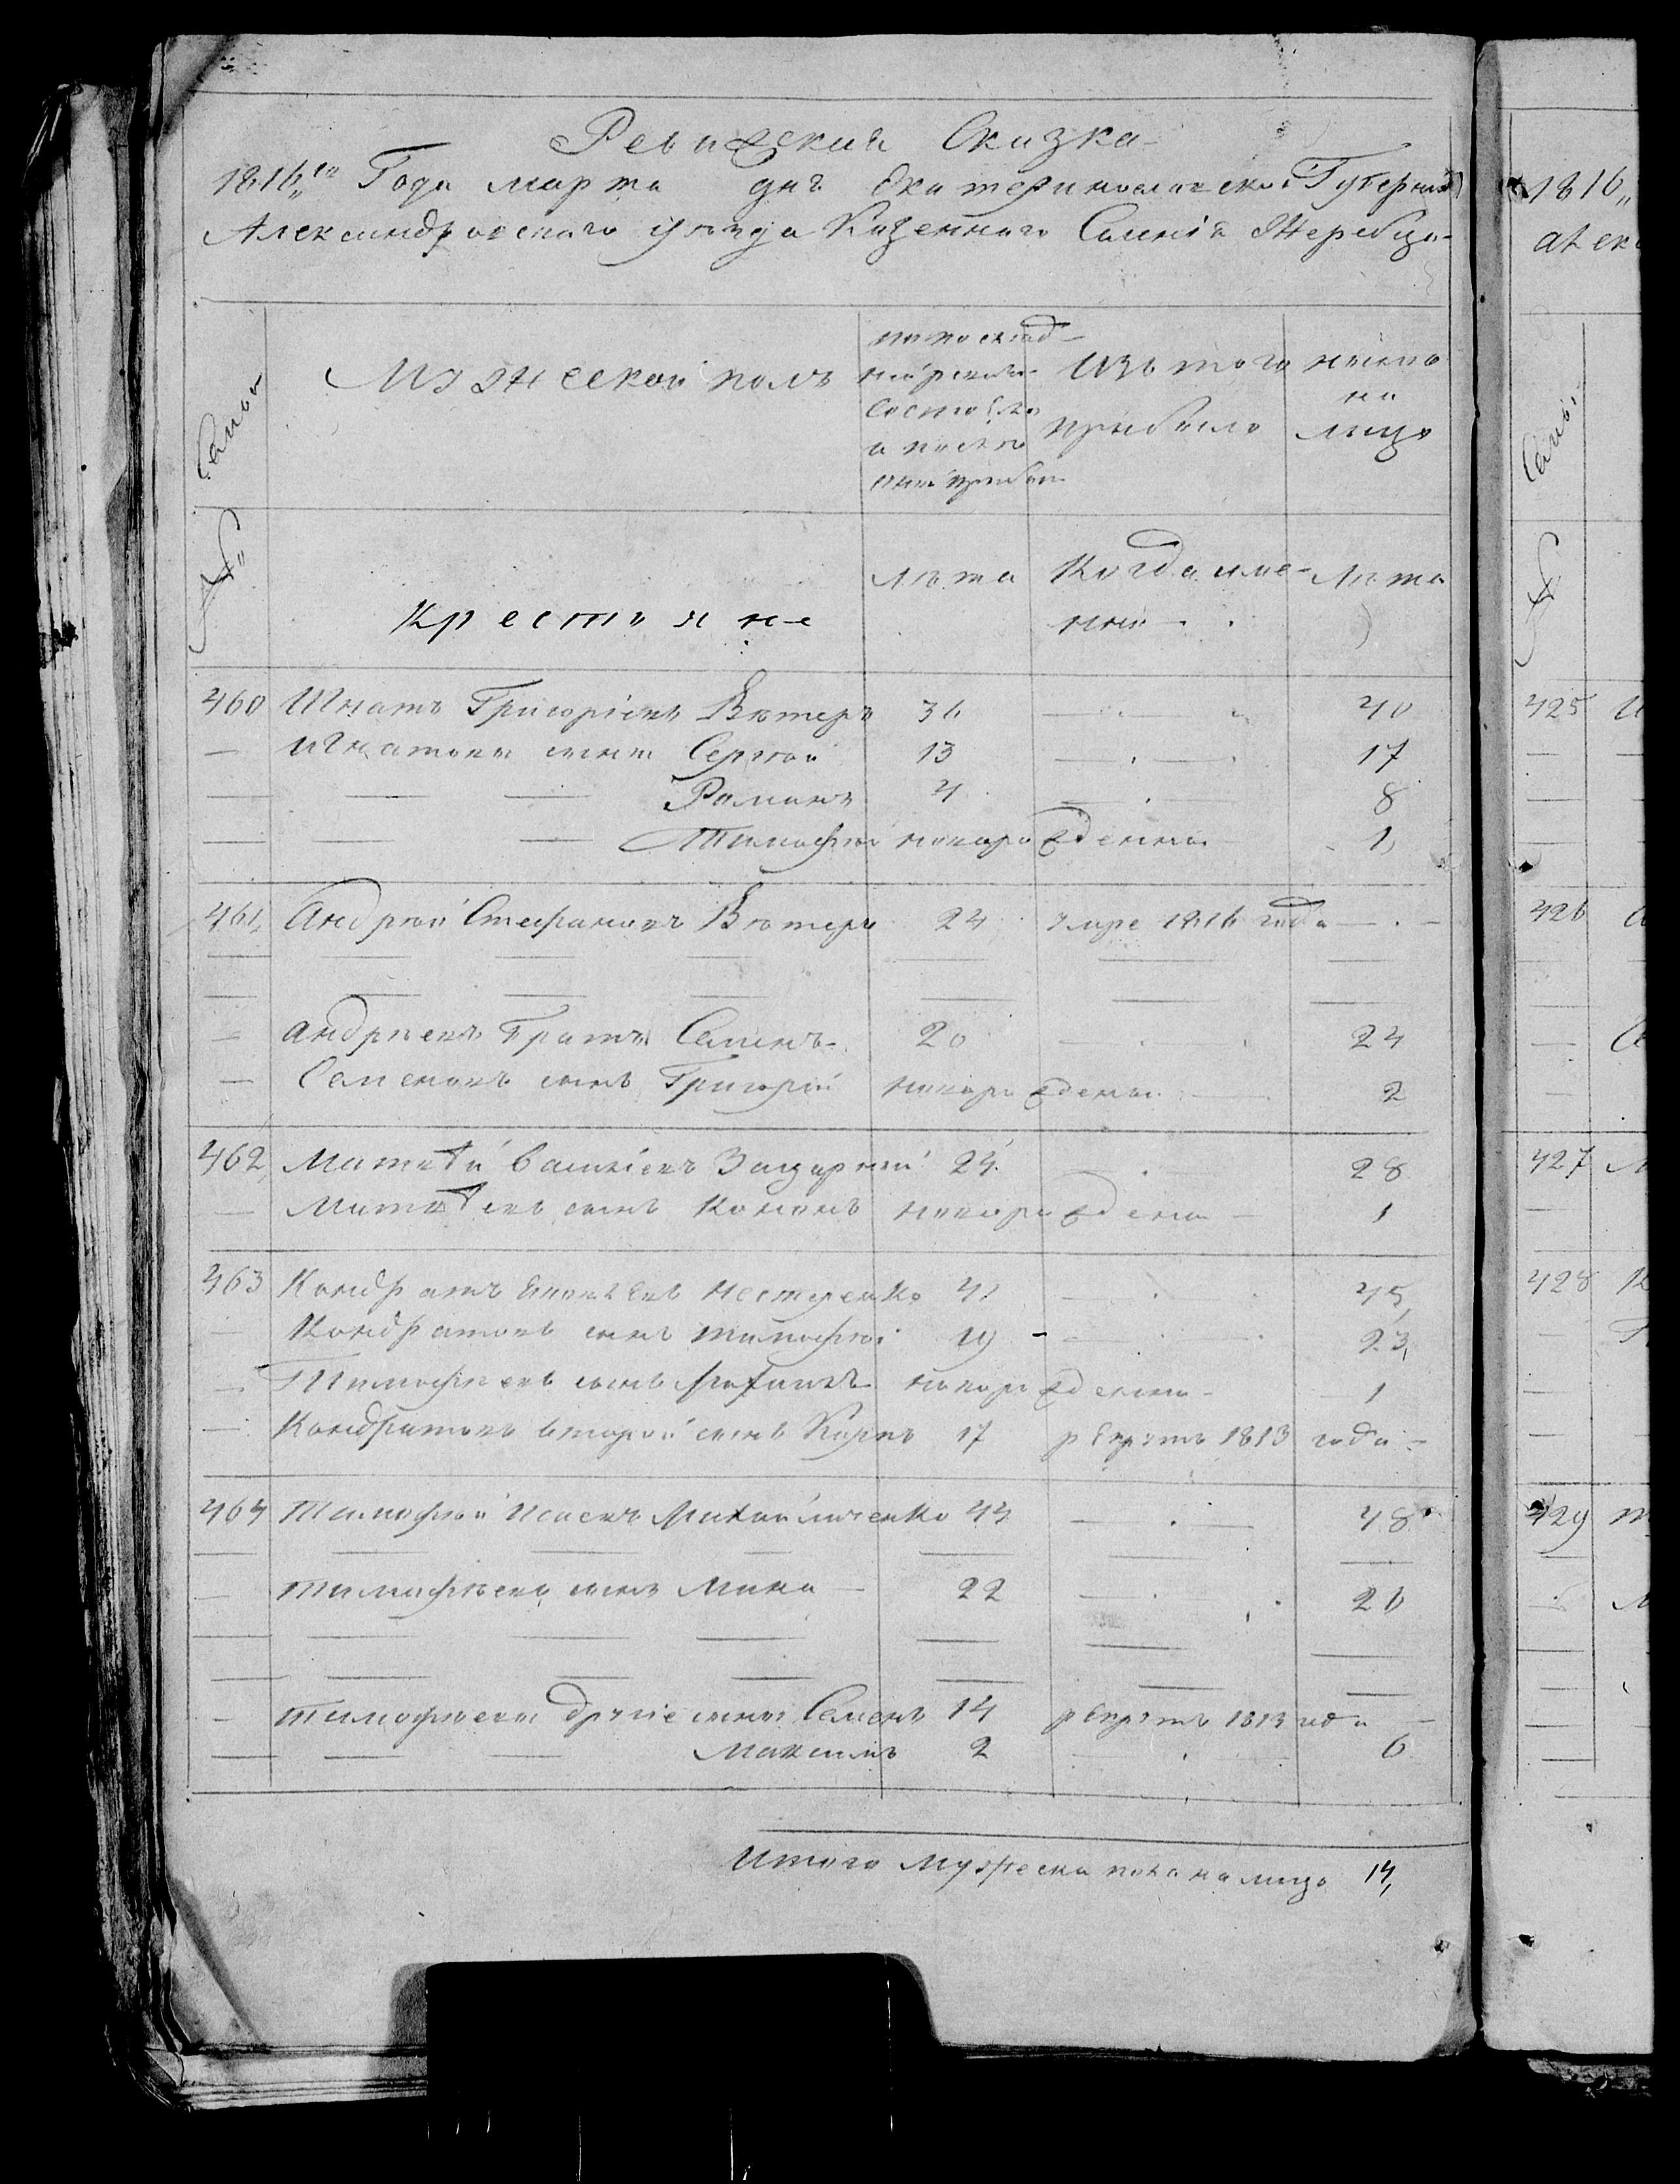 Ревизская Сказка
1816го Года марта дня Екатеринославской Губернии
Александровского уезда Казенного Селения Жеребца
№ Семьи
Мужеской полъ
по последней ревизии состояло и после оной прибыло
Изъ того выбыло
ныне на лицо
Крестьяне
лѣта
Когда имянно
Лѣта
460 Игнатъ Григорьевъ Вѣтеръ 36 40
Игнатовы сыны Сергѣй 13 17
Романъ 4 8
Тимофѣй новорожденны 1
461 Андрѣй Стефановъ Вѣтеръ 24 умре 1816 года
Андрѣевъ Братъ Семенъ 20 24
Семеновъ сынъ Григорій новорожденны 2
462 Матвѣй Васильевъ Задорный 24 28
Матвѣевъ сынъ Кононъ новорожденны 1
463 Кондратъ Нестеренко 41 45
Кондратовъ сынъ тимофѣй 19 23
Тимофѣевъ сынъ новорожденны 1
Кондратовъ второй сынъ Карпъ 17 рекрутъ 1813 года
464 Тимофѣй Исаевъ Михайличенко 44 48
тимофѣевъ сынъ Мина 22 26
тимофѣевы другие сыны Семенъ 14 рекрутъ 1813 года
Максимъ 2 6
Итого мужеска пола на лицо 14
1816
Алек
№ Семьи
425 И
426 А
427 М
428 К
429 Т